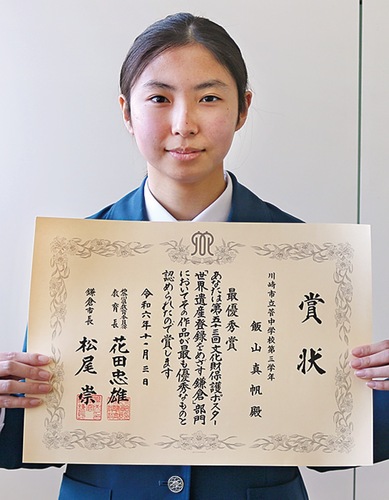 賞状
川崎市立菅中学校第三学年
飯山真帆殿
最優秀賞
あなたは第五十三回文化財保護ポスター
「世界遺産登録をめざす鎌倉」部門
においてその作品が最も優秀なものと
認められたので賞します
令和六年十一月三日
教育長 花田忠雄
鎌倉市長 松尾崇